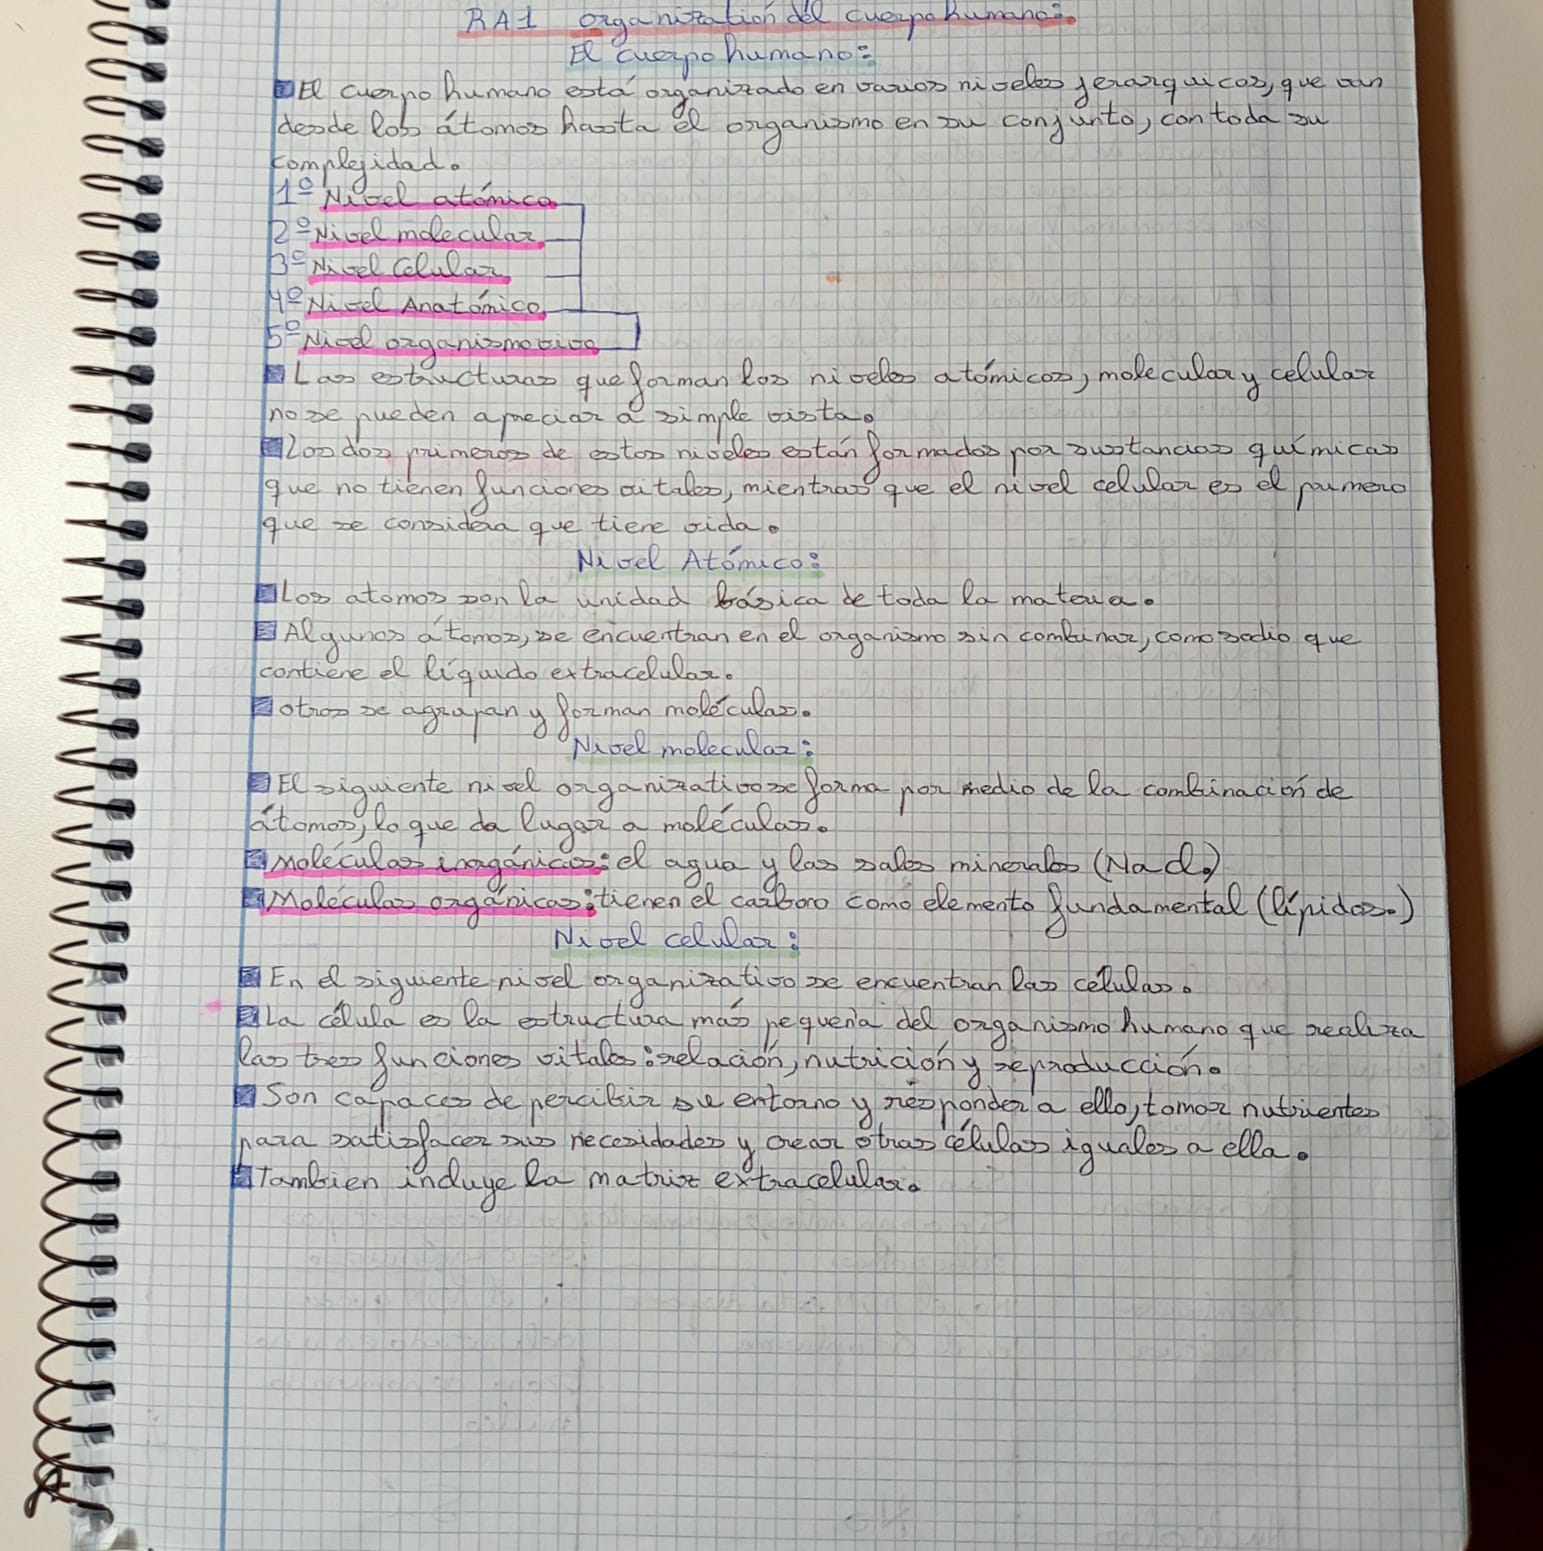 RA1 organización del cuerpo humano:
El cuerpo humano:
El cuerpo humano está organizado en varios niveles jerarquicos, que van
desde los átomos hasta el organismo en su conjunto, con toda su
complejidad.
1º Nivel atómico
2º Nivel molecular
3º Nivel Celular
4º Nivel Anatómico
5º Nivel organismotivo
Las estructuras que forman los niveles atómicos, molecular y celular
no se pueden apreciar a simple vista.
Los dos primeros de estos niveles están formados por sustancias químicas
que no tienen funciones vitales, mientras que el nivel celular es el primero
que se considera que tiene vida.
Nivel Atómico:
Los atomos son la unidad básica de toda la materia.
Algunos átomos, se encuentran en el organismo sin combinar, como sodio que
contiene el líquido extracelular.
otros se agrupan y forman moléculas.
Nivel molecular:
El siguiente nivel organizativo se forma por medio de la combinación de
átomos, lo que da lugar a moléculas.
Moléculas inorgánicas: el agua y las sales minerales (Nacl.)
Moléculas orgánicas: tienen el carbono como elemento fundamental (lípidos.)
Nivel celular:
En el siguiente nivel organizativo se encuentran las células.
La célula es la estructura más pequeña del organismo humano que realiza
las tres funciones vitales: relación, nutrición y reproducción.
Son capaces de percibir su entorno y responder a ello, tomar nutrientes
para satisfacer sus necesidades y crear otras células iguales a ella.
Tambien incluye la matriz extracelular.